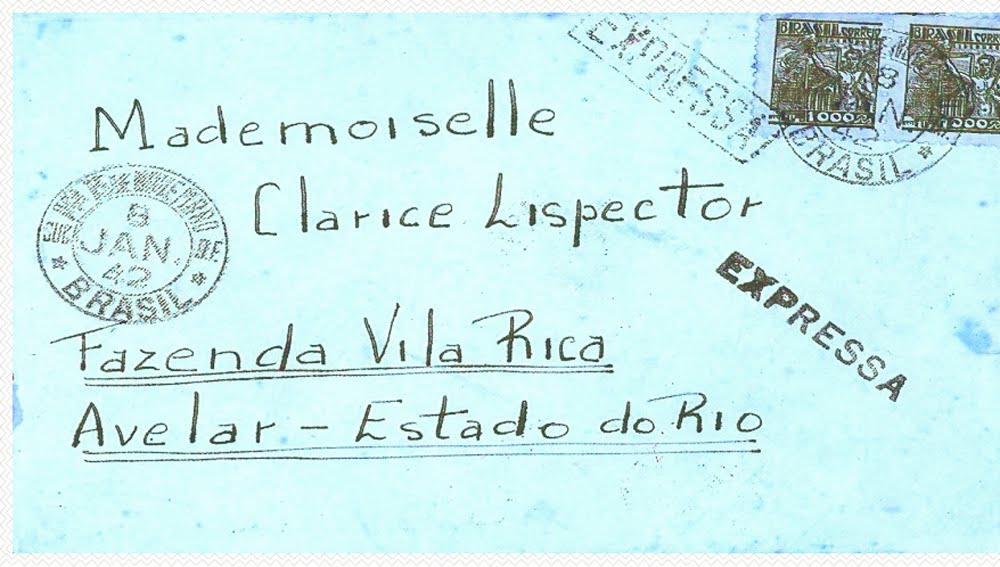 EXPRESSA
BRASIL CORREIO
1000
BRASIL CORREIO
000
42
BRASIL
Mademoiselle
Clarice Lispector
8
JAN.
42
BRASIL
EXPRESSA
Fazenda Vila Rica
Avelar - Estado do Rio